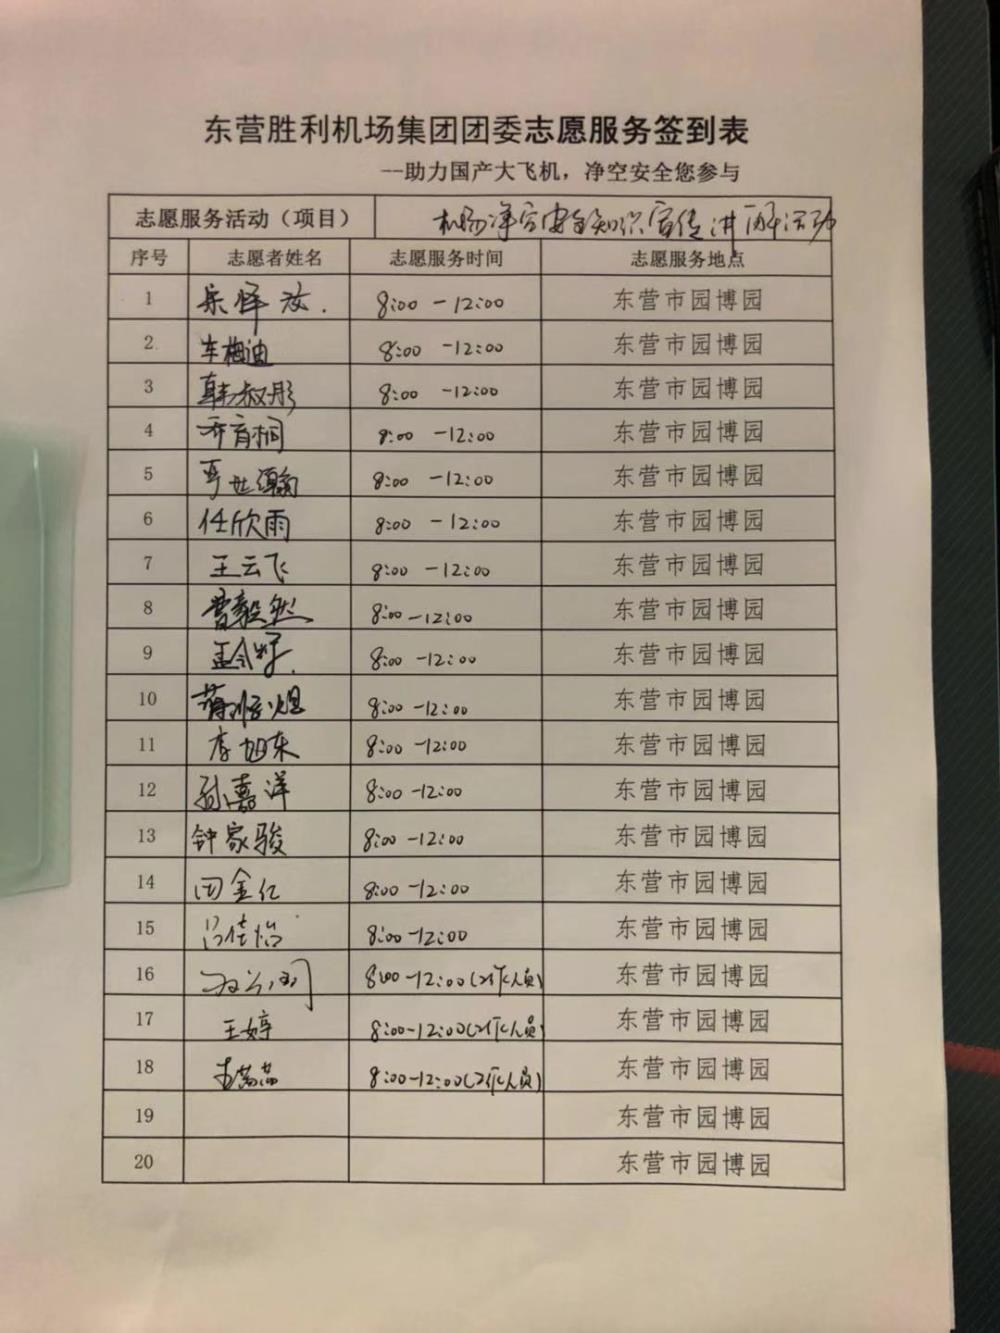 东营胜利机场集团团委志愿服务签到表
--助力国产大飞机，净空安全您参与
志愿服务活动（项目） 机场净空安全知识宣传讲解活动
序号 志愿者姓名 志愿服务时间 志愿服务地点
1 8:00-12:00 东营市园博园
2 车梅迪 8:00-12:00 东营市园博园
3 韩叔彤 8:00-12:00 东营市园博园
4 乔育桐 8:00-12:00 东营市园博园
5 世瀚 8:00-12:00 东营市园博园
6 任欣雨 8:00-12:00 东营市园博园
7 王云飞 8:00-12:00 东营市园博园
8 曹毅然 8:00-12:00 东营市园博园
9 8:00-12:00 东营市园博园
10 8:00-12:00 东营市园博园
11 李旭东 8:00-12:00 东营市园博园
12 孙嘉洋 8:00-12:00 东营市园博园
13 钟家骏 8:00-12:00 东营市园博园
14 田金仁 8:00-12:00 东营市园博园
15 吕佳怡 8:00-12:00 东营市园博园
16 8:00-12:00(工作人员) 东营市园博园
17 王婷 8:00-12:00(工作人员) 东营市园博园
18 8:00-12:00(工作人员) 东营市园博园
19 东营市园博园
20 东营市园博园